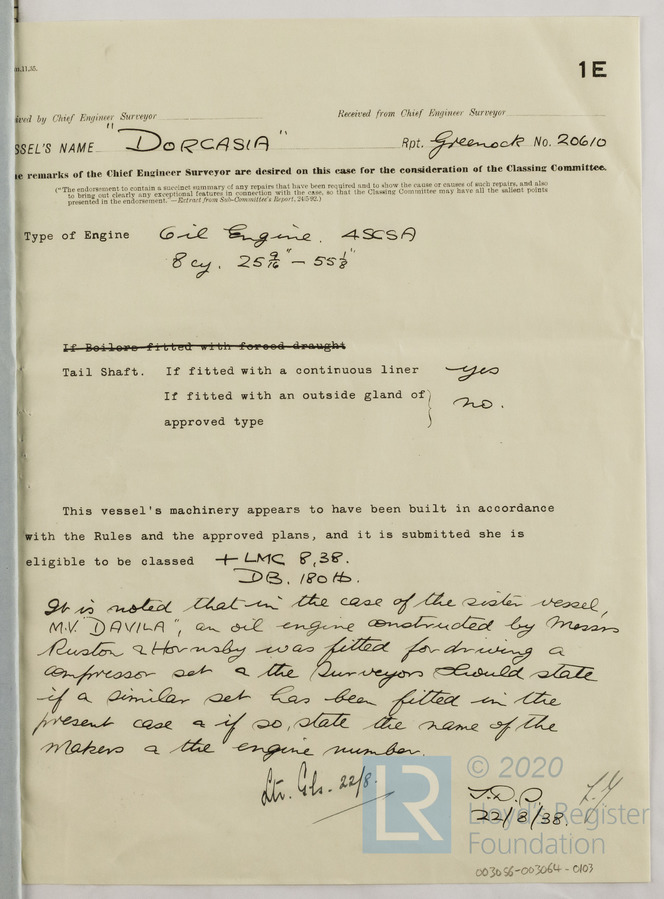 m.11,35.
1E
ived by Chief Engineer Surveyor
Received from Chief Engineer Surveyor
SSEL'S NAME "DORCASIA"
Rpt. Greenock No. 20610
e remarks of the Chief Engineer Surveyor are desired on this case for the consideration of the Classing Committee.
("The endorsement to contain a succinct summary of any repairs that have been required and to show the cause or causes of such repairs, and also
to bring out clearly any exceptional features in connection with the case, so that the Classing Committee may have all the salient points
presented in the endorsement."—Extract from Sub-Committee's Report, 24/5/92.)
Type of Engine Oil Engine. 4SCSA
8 cy. 25 9/16" - 55 1/8"
If Boilers fitted with forced draught
Tail Shaft. If fitted with a continuous liner yes
If fitted with an outside gland of
approved type } no.
This vessel's machinery appears to have been built in accordance
with the Rules and the approved plans, and it is submitted she is
eligible to be classed + LMC 8,38.
DB. 180 lb.
It is noted that in the case of the sister vessel,
M.V. "DAVILA", an oil engine constructed by Messrs
Ruston & Hornsby was fitted for driving a
compressor set & the Surveyors should state
if a similar set has been fitted in the
present case & if so, state the name of the
makers & the engine number.
Ltr. Gls. 22/8.
22/8/38.
LR
© 2020
Lloyd's Register
Foundation
003056-003064-0103